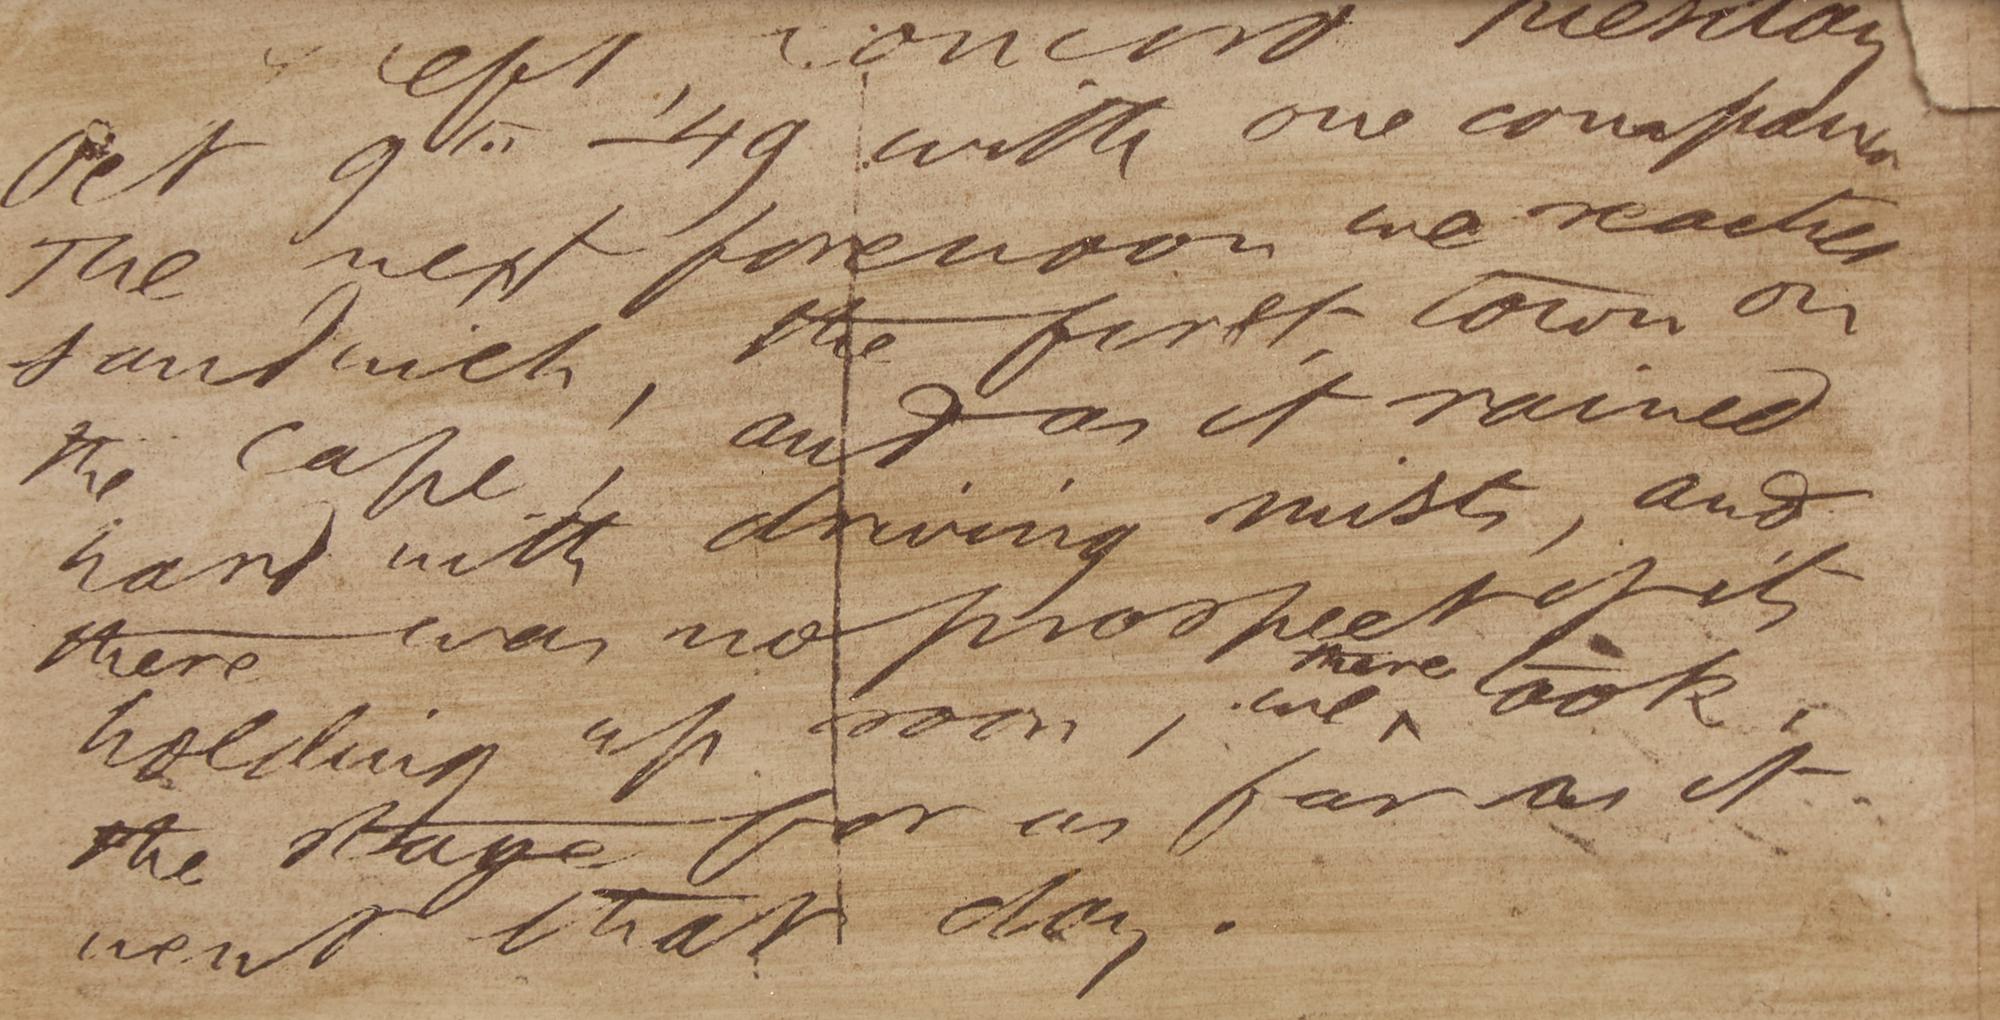 left Concord Tuesday
Oct 9th —'49 with one companion
The next forenoon we reached
Sandwich, the first town on
the Cape, and as it rained
hard with driving mists, and
there was no prospect of its
holding up soon, we ^there took,
the stage for as far as it
went that day.